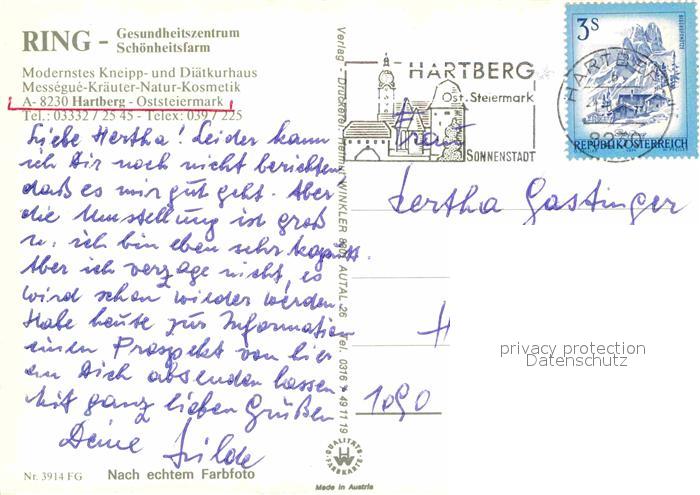 RING - Gesundheitszentrum
Schönheitsfarm
Modernstes Kneipp- und Diätkurhaus
Mességué-Kräuter-Natur-Kosmetik
A- 8230 Hartberg - Oststeiermark
Tel.: 03332 / 25 45 - Telex: 039 / 225
Liebe Hertha! Leider kann
ich Dir noch nicht berichten
daß es mir gut geht. Aber
die Umstellung ist groß
u. ich bin eben sehr kaputt.
Aber ich verzage nicht, es
wird schon wieder werden.
Habe heute zur Information
einen Prospekt von hier
an Dich absenden lassen.
Mit ganz lieben Grüßen
Deine
Nr. 3914 FG
Nach echtem Farbfoto
Verlag - Druckerei Helmut WINKLER 8301 AUTAL 26 Tel. 0316 49 11 19
QUALITÄTS-
FARBKARTE
Made in Austria
HARTBERG
Ost-Steiermark
SONNENSTADT
HARTBERG
8230
3S
REPUBLIK ÖSTERREICH
Frau
Hertha Gastinger
1090
privacy protection
Datenschutz